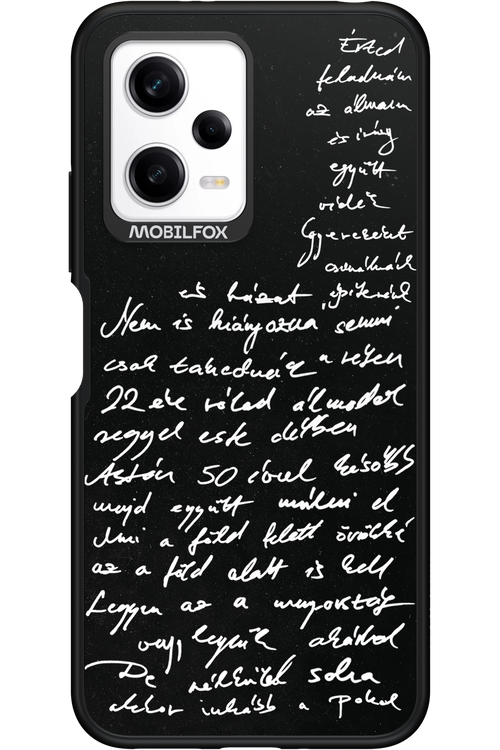 MOBILFOX
Érted
feladnám
az álmam
és irány
együtt
vidék
Gyerekeket
csinálnánk
és házat építenénk
Nem is hiányozna semmi
csak takednék a részen
22 éve rólad álmodok
reggel este délben
Aztán 50 évvel később
majd együtt múlni el
Ami a föld felett örökké
az a föld alatt is kell
Legyen az a mennyország
vagy legyünk akárhol
De nélküled soha
akkor inkább a Pokol